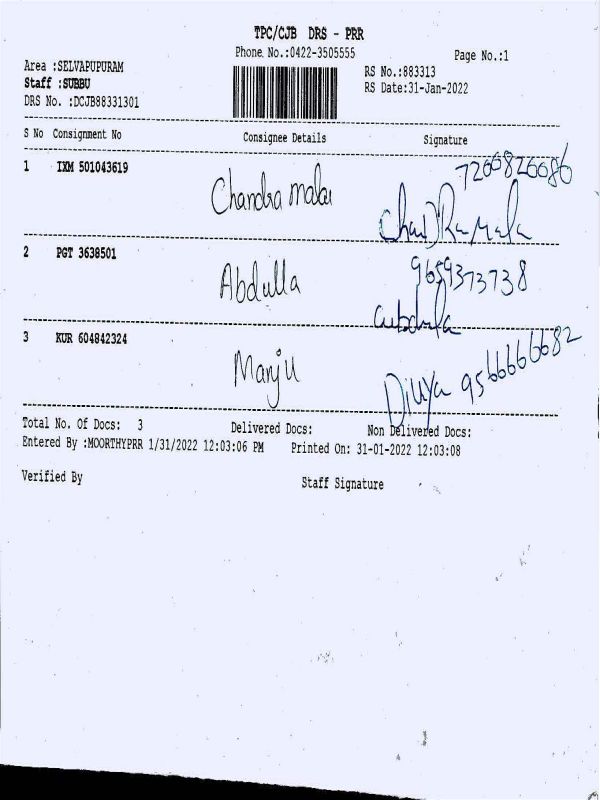 TPC/CJB DRS - PRR
Phone. No.:0422-3505555
Page No.:1
Area :SELVAPUPURAM
RS No.:883313
Staff :SUBBU
RS Date:31-Jan-2022
DRS No. :DCJB88331301
S No Consignment No Consignee Details Signature
7200820086
1 IXM 501043619
Chandra mala
2 PGT 3638501
9659373738
Abdulla
3 KUR 604842324
Manju
Divya 9566666682
Total No. Of Docs: 3 Delivered Docs: Non Delivered Docs:
Entered By :MOORTHYPRR 1/31/2022 12:03:06 PM Printed On: 31-01-2022 12:03:08
Verified By Staff Signature